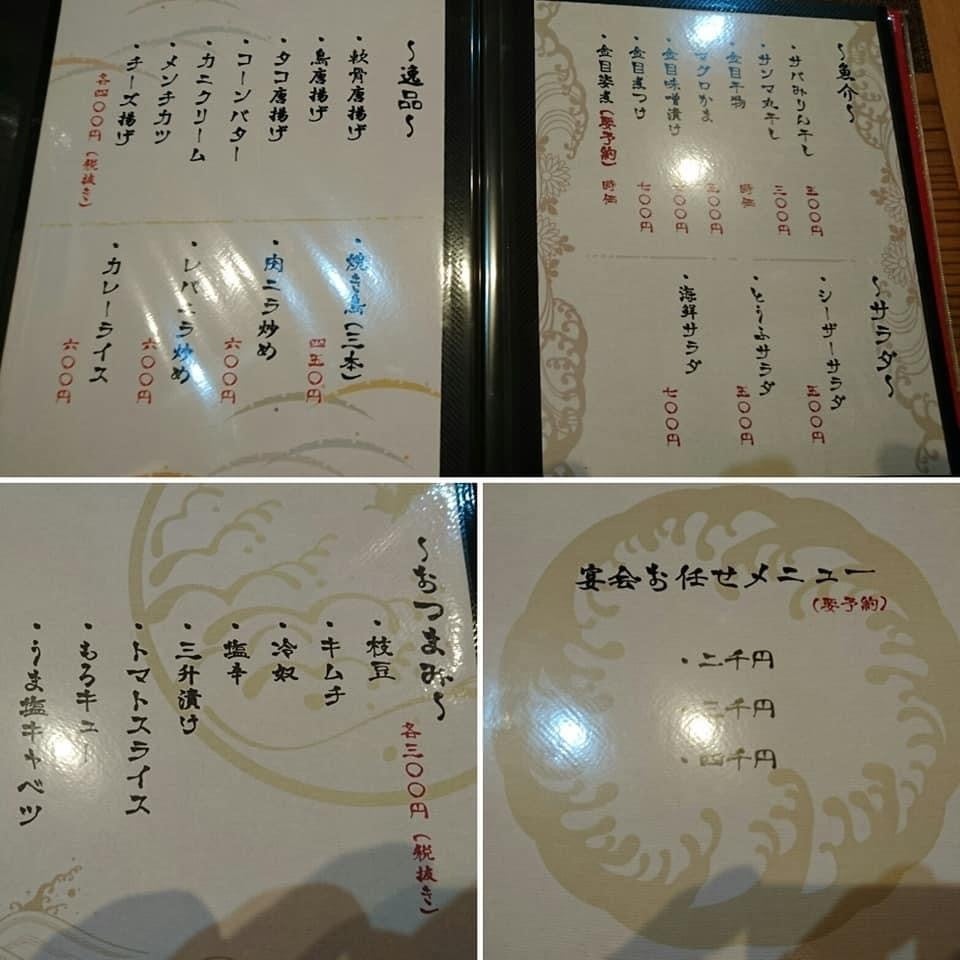 ～逸品～
・軟骨唐揚げ
・鳥唐揚げ
・タコ唐揚げ
・コーンバター
・カニクリーム
・メンチカツ
・チーズ揚げ
各四〇〇円（税抜き）
・焼き鳥（三本）
四五〇円
・肉ニラ炒め
六〇〇円
・レバニラ炒め
六〇〇円
・カレーライス
六〇〇円
～魚介～
・サバみりん干し
五〇〇円
・サンマ丸干し
三〇〇円
・金目干物
時価
・マグロかま
五〇〇円
・金目味噌漬け
〇〇円
・金目煮つけ
七〇〇円
・金目姿煮（要予約）
時価
～サラダ～
・シーザーサラダ
五〇〇円
・とうふサラダ
五〇〇円
・海鮮サラダ
七〇〇円
～おつまみ～
各三〇〇円（税抜き）
・枝豆
・キムチ
・冷奴
・塩辛
・三升漬け
・トマトスライス
・もろキュー
・うま塩キャベツ
宴会お任せメニュー
（要予約）
・二千円
・三千円
・四千円